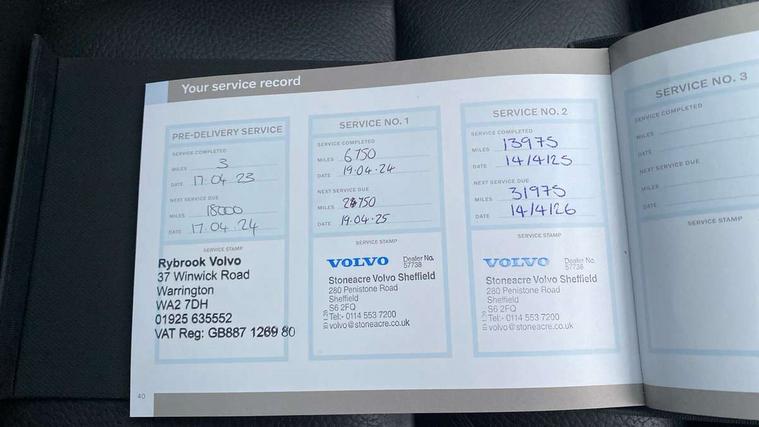 Your service record
PRE-DELIVERY SERVICE
SERVICE COMPLETED
MILES 3
DATE 17.04.23
NEXT SERVICE DUE
MILES 18000
DATE 17.04.24
SERVICE STAMP
Rybrook Volvo
37 Winwick Road
Warrington
WA2 7DH
01925 635552
VAT Reg: GB887 1269 80
SERVICE NO. 1
SERVICE COMPLETED
MILES 6750
DATE 19.04.24
NEXT SERVICE DUE
MILES 24750
DATE 19.04.25
SERVICE STAMP
VOLVO Dealer No.
57738
Stoneacre Volvo Sheffield
280 Penistone Road
Sheffield
S6 2FQ
Tel:- 0114 553 7200
volvo@stoneacre.co.uk
SERVICE NO. 2
SERVICE COMPLETED
MILES 13975
DATE 14/4/25
NEXT SERVICE DUE
MILES 31975
DATE 14/4/26
SERVICE STAMP
VOLVO Dealer No.
57738
Stoneacre Volvo Sheffield
280 Penistone Road
Sheffield
S6 2FQ
Tel:- 0114 553 7200
volvo@stoneacre.co.uk
SERVICE NO. 3
SERVICE COMPLETED
MILES
DATE
NEXT SERVICE DUE
MILES
DATE
SERVICE STAMP
40